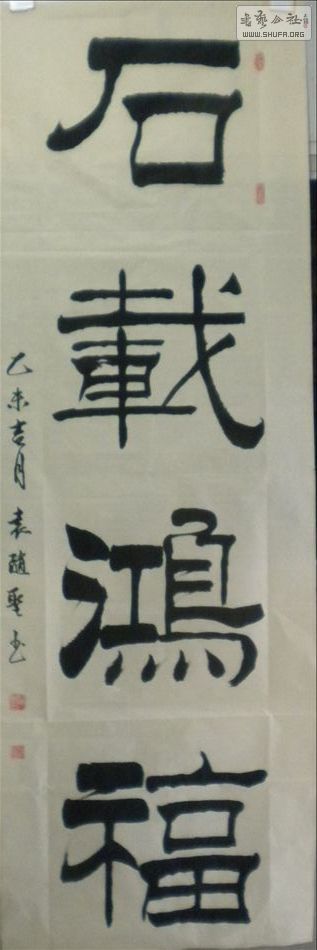 石載鴻福
乙未吉月袁隨聖书
書藝公社
www.SHUFA.ORG